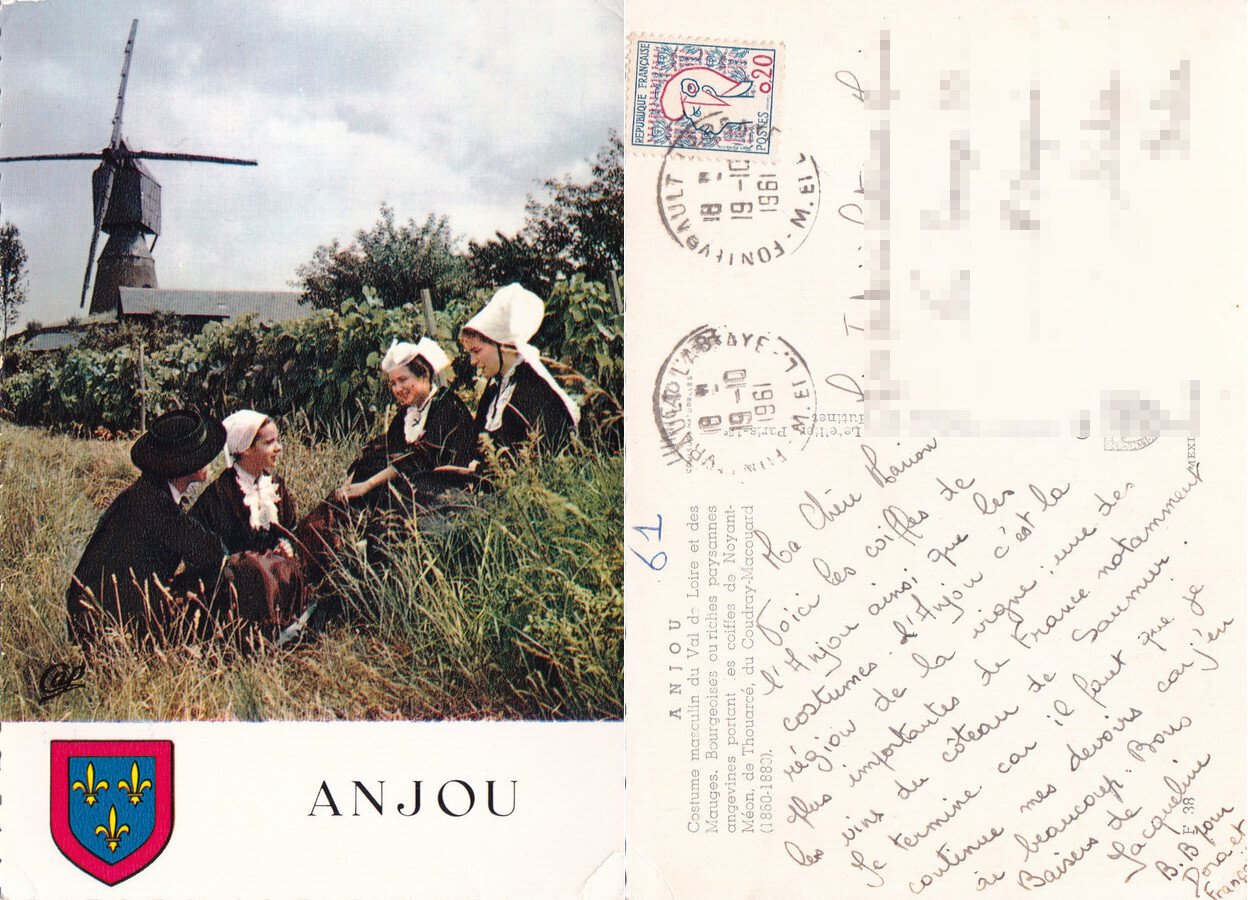 Cap
ANJOU
REPUBLIQUE FRANÇAISE
0,20
POSTES
18 H
19-10
1961
M. ET L.
18 H
19-10
1961
M. ET L.
61
ANJOU
Costume masculin du Val de Loire et des
Mauges. Bourgeoises ou riches paysannes
angevines portant les coiffes de Noyant-
Méon, de Thouarcé, du Coudray-Macouard
(1860-1880).
Ma Chère Marion
Voici les coiffes de
l'Anjou ainsi que les
costumes. l'Anjou c'est la
région de la vigne; une des
plus importantes de France notamment
les vins du côteau de Saumur.
Je termine car il faut que je
continue mes devoirs car j'en
ai beaucoup. Bons
Baisers de
Jacqueline
B.Bjour
Dora et
Franço
E 38
MEXI